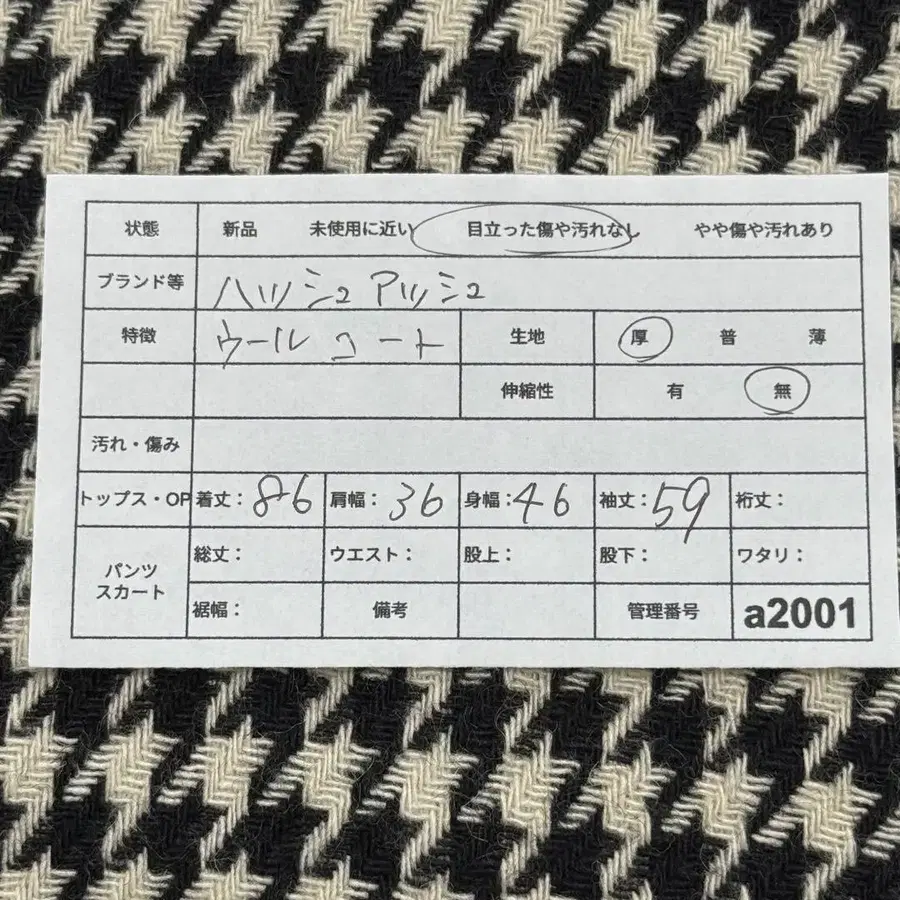 状態 新品 未使用に近い 目立った傷や汚れなし やや傷や汚れあり
ブランド等 ハッシュアッシュ
特徴 ウールコート 生地 厚 普 薄
伸縮性 有 無
汚れ・傷み
トップス・OP 着丈：86 肩幅：36 身幅：46 袖丈：59 裄丈：
パンツ スカート 総丈： ウエスト： 股上： 股下： ワタリ：
裾幅： 備考 管理番号 a2001